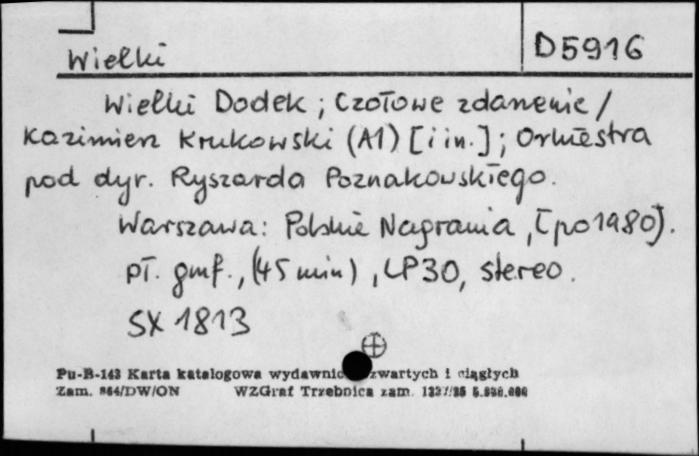 Wielki
D5916
Wielki Dodek ; Czołowe zdarzenie /
Kazimierz Krukowski (A1) [i in.] ; Orkiestra
pod dyr. Ryszarda Poznakowskiego.
Warszawa : Polskie Nagrania , [po 1980].
pł. gmf., (45 min) , LP30, stereo.
SX 1813
Pu-B-143 Karta katalogowa wydawnic zwartych i ciągłych
Zam. 864/DW/ON WZGraf Trzebnica zam.